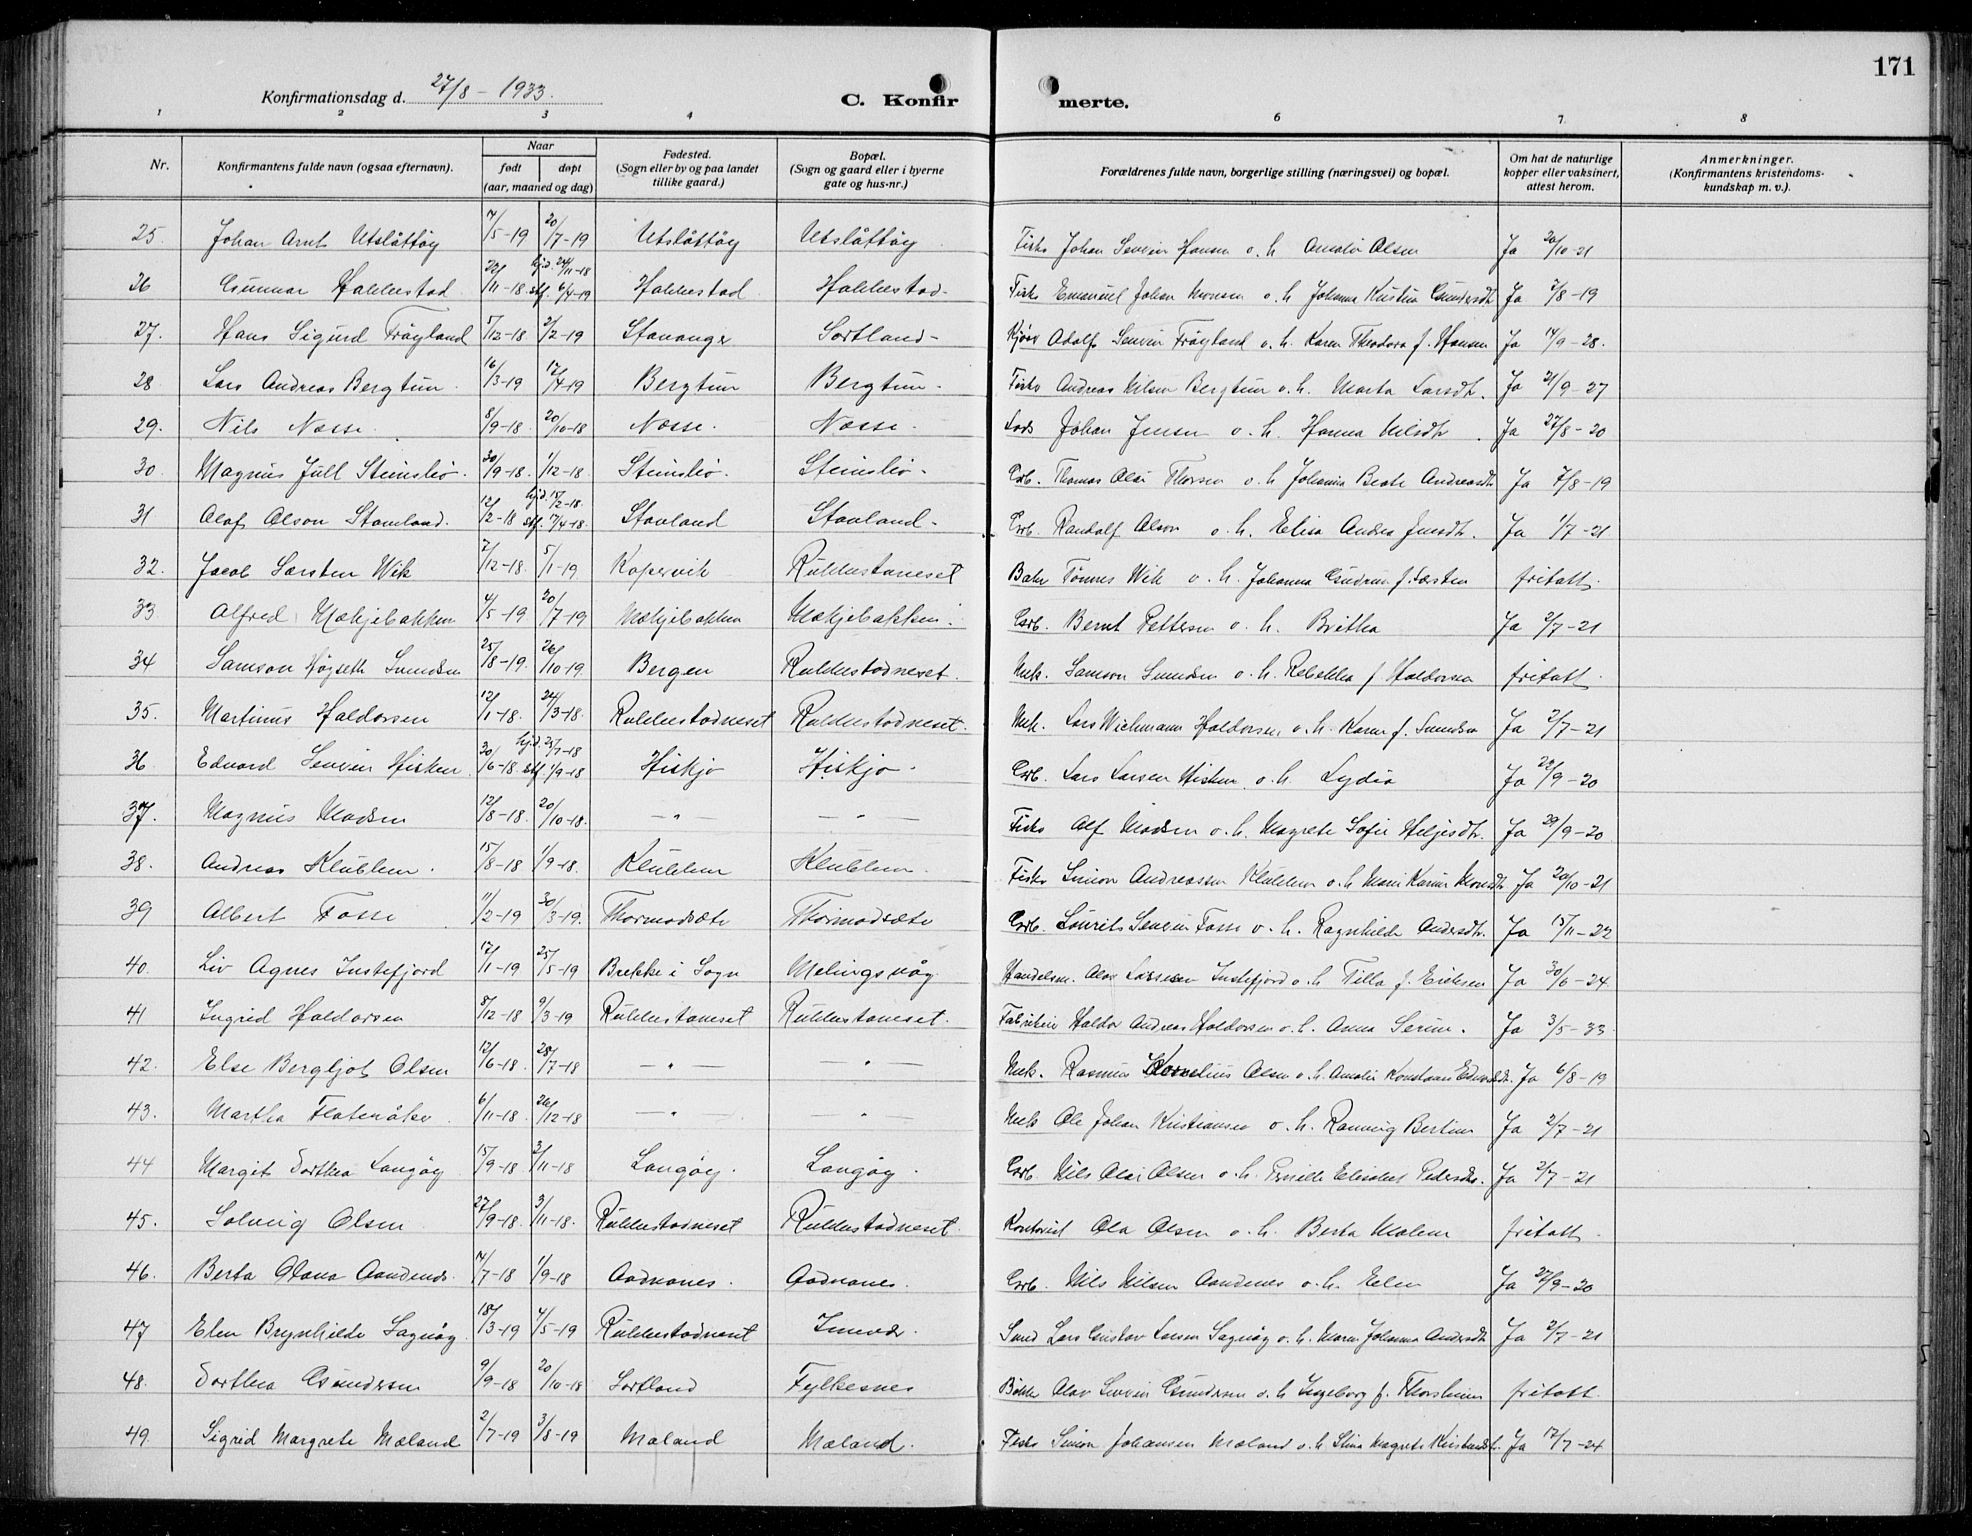 171
Konfirmationsdag d. 27/8 - 1933. C. Konfirmerte.
1 2 3 4 6 7 8
Nr. Konfirmantens fulde navn (ogsaa efternavn). Naar født døpt (aar, maaned og dag) Fødested. (Sogn eller by og paa landet tillike gaard.) Bopæl. (Sogn og gaard eller i byerne gate og hus-nr.) Forældrenes fulde navn, borgerlige stilling (næringsvei) og bopæl. Om hat de naturlige kopper eller vaksinert, attest herom. Anmerkninger. (Konfirmantens kristendoms-kundskap m. v.).
25. Johan Arnt Utslåttøy 7/5-19 20/7-19 Utslåttøy Utslåttøy Fisks Johan Severin Hansen o. h. Amalie Olsen Ja 20/10-21
26 Gunnar Hallestad 22/11-18 hjd. 24/11-18 stf. 6/4-19 Fisks Emanuel Johan Monsen o. h. Johanna Kristina Ja 7/8-19
27. Hans Sigurd Frøyland 5/12-18 2/2-19 Stavanger Sortland Adolf Severin Frøyland o. h. Karen Theodora f. Hansen Ja 14/9-28.
28 Lars Andreas Bergtun 16/3-19 17/4-19 Bergtun Bergtun Fisks Andreas Nilsen Bergtun o. h. Marta Larsdt. Ja 21/9-27
29. Nils Nesse 8/9-18 20/10-18 Nesse. Nesse. Lods Johan Jensen o. h. Hanna Nilsdtr. Ja 27/8-20
30. Magnus Jull Steinsbø 30/9-18 1/12-18 Steinsbø. Steinsbø. Grb. Thomas Olai Thorsen o. h. Johanna Beate Andreasdt Ja 7/8-19
31. Olaf Olson Stavland. 12/2-18 hjd. 15/2-18 stf. 7/4-18. Stavland Stavland Grb. Randolf Olson o. h. Elisa Andrea Jensdt. Ja 1/7-21
32. Jacob Sørsten Wik 7/12-18. 5/1-19 Kopervik Rubbestaneset Baker Tønnes Wik o. h. Johanna Gudrun f. Sørsten fritatt.
33 Alfred Mækjebakken 4/5-19 20/7-19 Mækjebakken Mækjebakken Grb. Bernt Pettersen o. h. Britha Ja 2/7-21
34 Samson Høyseth Svendsen 25/8-19. 26/10-19. Bergen Rubbestadneset. Mek. Samson Svendsen o. h. Rebekka f. Haldorsen fritatt.
35. Martinus Haldorsen 12/1-18. 24/3-18. Rubbestadneset Rubbestadneset. Mek. Lars Wichmann Haldorsen o. h. Karen f. Svendsen Ja 2/7-21
36 Edvard Severin Hisken 30/6-18. hjd. 25/7-18 stf. 1/9-18 Hiskjo Hiskjo Grb. Lars Larsen Hisken o. h. Lydia Ja 28/9-20
37. Magnus Madsen 12/8-18. 20/10-18. — " — — " — Fisks Alf Madsen o. h. Magrete Sofie Heljesdt. Ja 29/9-20
38. Andreas Klubben. 15/8-18 1/9-18. Klubben Klubben. Fisks Simon Andreassen Klubben o. h. Marie Karine Monsdt Ja 20/10-21
39 Albert Fosse 11/2-19 30/3-19. Thormodsæte Thormodsæte Grb. Lourits Severin Fosse o. h. Ragnhilde Andersdt. Ja 15/11-22
40. Liv Agnes Instefjord 17/1-19 25/5-19 Brekke i Sogn Melingsvåg. Handelsm. Olav Lassesen Instefjord o. h. Tilla f. Eriksen Ja 30/6-24.
41 Ingrid Haldorsen 8/12-18 9/3-19 Rubbestaneset Rubbestaneset. Fabrikeier Haldor Andreas Haldorsen o. h. Anna Serine. Ja 3/5-33
42. Else Bergljot Olsen 12/6-18. 28/7-18 — " — — " — Mek. Rasmus Kornelius Olsen o. h. Amalie Konstanse Ja 6/8-19
43. Martha Flatenåker 6/11-18. 26/12-18 — " — — " — Mek Ole Johan Kristiansen o. h. Rannveig Bertine Ja 2/7-21
44 Margit Dorthea Langøy 15/9-18. 3/11-18 Langøy. Langøy. Grb. Nils Olai Olsen o. h. Pernille Elisabet Pedersdtr. Ja 2/7-21
45. Solveig Olsen 27/9-18. 3/11-18. Rubbestadneset Rubbestadneset. Kontorist Ola Olsen o. h. Berta Malene fritatt.
46. Berta Olava Aandenes. 14/7-18 1/9-18 Aadnanes. Aadnanes. Grb. Nils Nilsen Aandenes o. h. Elen Ja 27/9-20
47 Elen Brynhilde Sagvåg 18/3-19 4/5-19 Rubbestadneset Innvær. Smed Lars Gustav Larsen Sagvåg o. h. Maren Johanna Andersdt Ja 2/7-21
48. Dorthea Gundersen 9/9-18 20/10-18 Sortland Fylkesnes Bøkker Olav Severin Gundersen o. h. Ingeborg f. Thorsheim fritatt.
49. Sigrid Margrete Mæland 2/7-19 3/8-19 Mæland Mæland. Fisks Simon Johansen Mæland o. h. Stina Magrete Ja 17/7-24